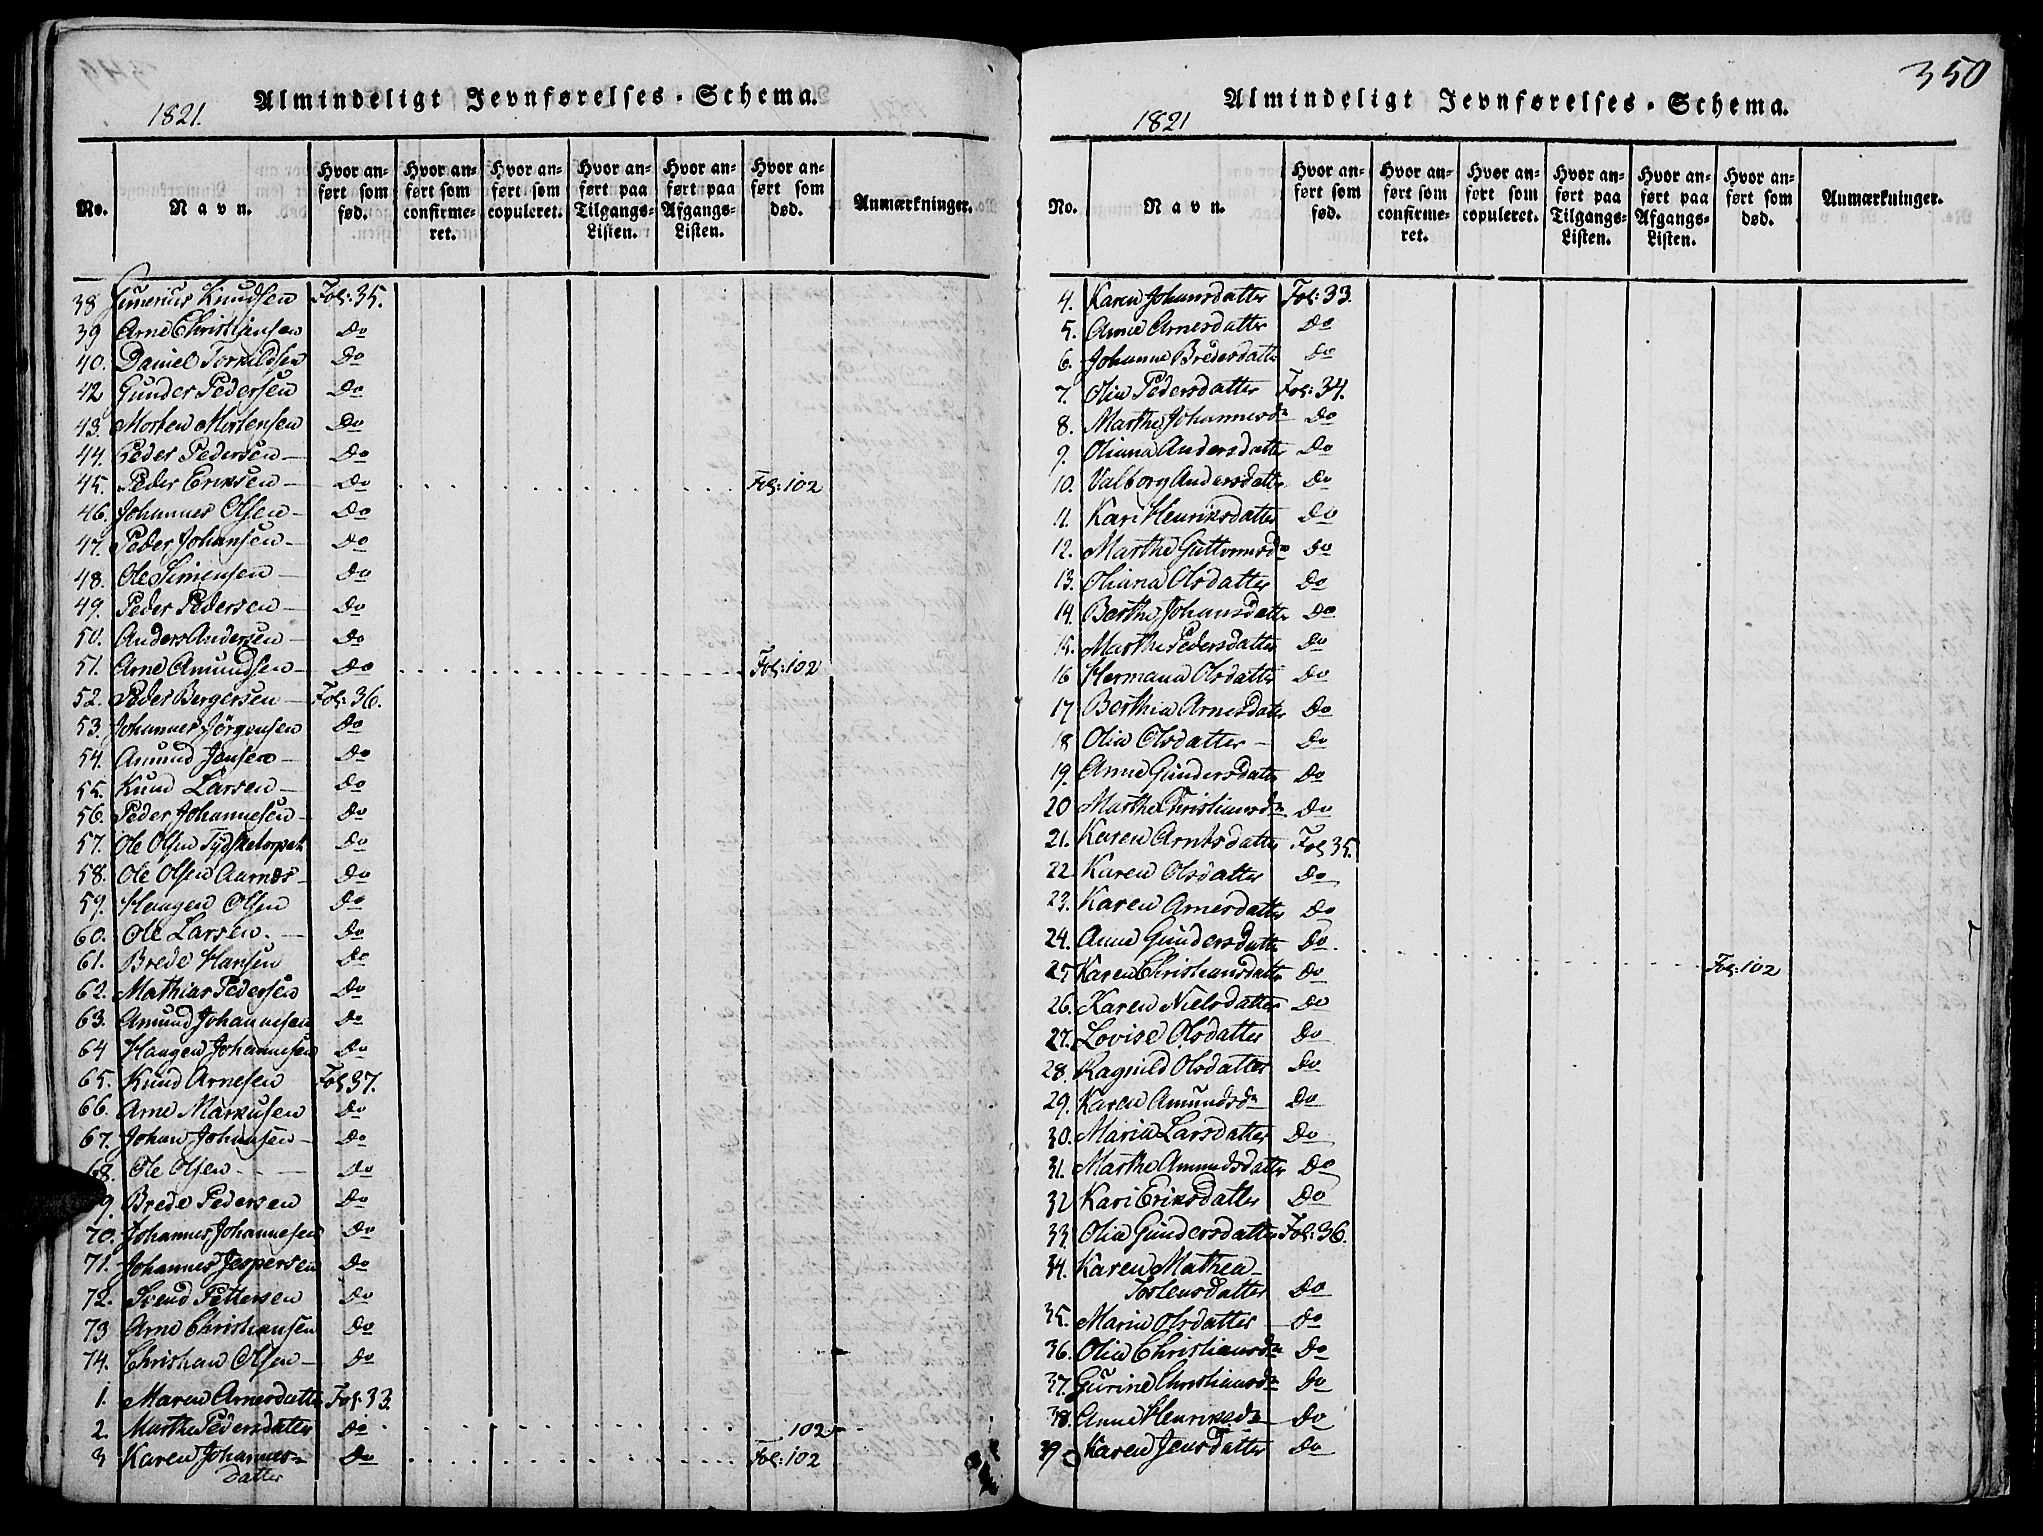 1821.
Almindeligt Jevnførelses-Schema.
No.
Navn.
Hvor an-
ført som
fød.
Hvor an-
ført som
confirme-
ret.
Hvor an-
ført som
copuleret.
Hvor an-
ført paa
Tilgangs-
Listen.
Hvor an-
ført paa
Afgangs-
Listen.
Hvor an-
ført som
død.
Anmærkninger.
38 Gunerius Knudsen Fol: 35.
39 Arne Christiansen Do
40. Daniel Torkildsen Do
42 Gunder Pedersen Do
43. Morten Mortensen Do
44. Peder Pedersen Do
45. Peder Eriksen Do Fol: 102
46. Johannes Olsen Do
47. Peder Johansen Do
48. Ole Simensen Do
49. Peder Pedersen Do
50. Anders Andersen Do
51. Arne Amundsen Do Fol: 102
52. Peder Bergersen Fol: 36.
53. Johannes Jörgensen Do
54. Amund Jensen Do
55. Knud Larsen Do
56. Peder Johannesen Do
57. Ole Olsen Tydsketorpet Do
58. Ole Olsen Aarnæs Do
59. Haagen Olsen Do
60. Ole Larsen. Do
61. Brede Hansen Do
62. Mathias Pedersen Do
63. Amund Johannesen Do
64 Haagen Johannesen Do
65. Knud Arnesen Fol 37.
66. Arne Markusen Do
67. Johan Johansen Do
68. Ole Olsen Do
9. Brede Pedersen Do
70. Johannes Johannesen Do
71. Johannes Jespersen Do
72. Svend Pettersen Do
73 Arne Christiansen Do
74. Christian Olsen Do
1. Maren Arnesdatter Fol: 33.
2. Marthe Pedersdatter Do 102
3 Karen Johannes- Do Fol: 102
datter
350
1821
Almindeligt Jevnførelses-Schema.
No.
Navn.
Hvor an-
ført som
fød.
Hvor an-
ført som
confirme-
ret.
Hvor an-
ført som
copuleret.
Hvor an-
ført paa
Tilgangs-
Listen.
Hvor an-
ført paa
Afgangs-
Listen.
Hvor an-
ført som
død.
Anmærkninger.
4. Karen Johansdatter Fol: 33.
5. Anne Arnesdatter Do
6. Johanne Bredesdatter Do
7. Olia Pedersdatter Fol: 34.
8. Marthe Johannesdr Do
9. Oliana Andersdatter Do
10. Valborg Andersdatter Do
11. Kari Henriksdatter Do
12. Marthe Guttormsdr Do
13. Oliana Olsdatter Do
14. Berthe Johansdatter Do
15. Marthe Pedersdatter Do
16 Hermana Olsdatter Do
17 Berthia Arnesdatter Do
18 Olia Olsdatter Do
19. Anne Gundersdatter Do
20 Marthe Christiansdr. Do
21. Karen Arntsdatter Fol 35.
22. Karen Olsdatter Do
23. Karen Arnesdatter Do
24. Anne Gundersdatter Do
25 Karen Christiansdatter Do Fol: 102
26. Karen Nielsdatter Do
27. Lovise Olsdatter Do
28. Ragnild Olsdatter Do
29. Karen Amundsdr Do
30. Maria Larsdatter Do
31. Marthe Amundsdatter Do
32 Kari Eriksdatter Do
33. Olia Gundersdatter Fol: 36.
34. Karen Mathea
Torstensdatter Do
35. Maria Olsdatter Do
36. Olia Christiansdr Do
37. Gurine Christiansdr Do
38. Anne Henriksdr Do
39 Karen Jensdatter Do